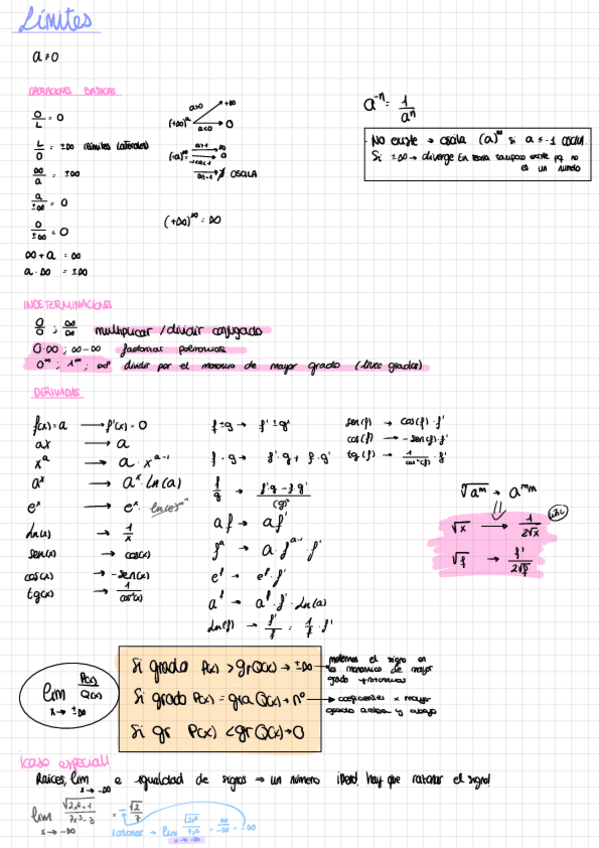 Límites
a ≠ 0
OPERACIONES BÁSICAS
0/L = 0
L/0 = ±∞ (límites laterales)
∞/a = ±∞
a/±∞ = 0
0/±∞ = 0
∞ + a = ∞
a · ∞ = ±∞
(+∞)^a a>0 → +∞
a<0 → 0
a>1 → ∞
-1<a<1 → 0
OSCILA
(+∞)^∞ = ∞
a^-n = 1/a^n
No existe → oscila (a)^∞ si a ≤ -1 oscila.
Si ±∞ → diverge En teoría tampoco existe pq no
es un número
INDETERMINACIONES
0/0 ; ∞/∞ multiplicar / dividir conjugado
0·∞ ; ∞-∞ factorizar polinomios
dividir por el monomio de mayor grado (lineas grados)
DERIVADAS
f(x) = a → f'(x) = 0
ax → a
x^a → a · x^a-1
a^x → a^x · ln(a)
e^x → e^x
ln(x) → 1/x
sen(x) → cos(x)
cos(x) → -sen(x)
tg(x) → 1/cos²(x)
f ± g → f' ± g'
f · g → f' · g + f · g'
f/g → f'·g - f·g' / (g)²
af → af'
f^a → a · f^a-1 · f'
e^f → e^f · f'
a^f → a^f · f' · ln(a)
ln(f) → f'/f = 1/f · f'
sen(f) → cos(f) · f'
cos(f) → -sen(f) · f'
tg(f) → 1/cos²(f) · f'
√x → 1/2√x
√f → f'/2√f
lim x → ±∞ P(x)/Q(x)
Si grado P(x) > gr Q(x) → ±∞
Si grado P(x) = gra Q(x) → nº
Si gr P(x) < gr Q(x) → 0
el signo en
los monomios de mayor
grado
coeficientes x mayor
grado arriba y abajo
¡caso especial!
Raíces, lim x → -∞ e igualdad de signos → un número hay que razonar el signo!
lim x → -∞
= - √2/7
razonar → lim x → -∞